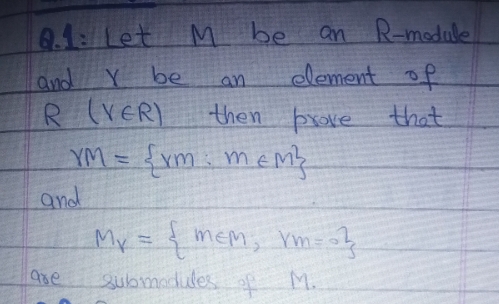 Q.1: Let M be an R-module
and r be an element of
R (r∈R) then prove that
rM = {rm : m∈M}
and
Mr = { m∈M; rm=0}
are submodules of M.